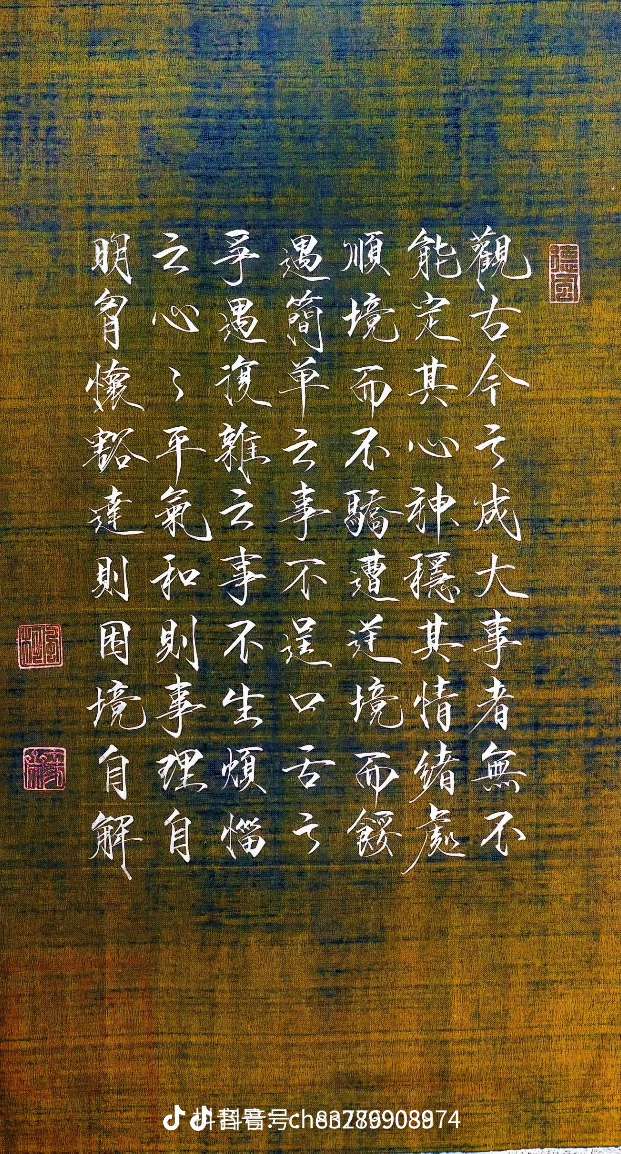 觀古今之成大事者無不
能定其心神穩其情緒處
順境而不驕遭逆境而餒
遇簡单之事不逞口舌之
爭遇復雜之事不生煩惱
之心〻平氣和則事理自
明胷懷豁達則困境自解
抖音号